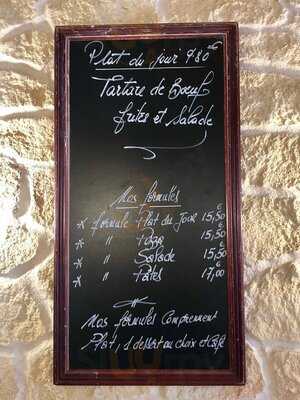 Plat du jour 9.80€
Tartare de Boeuf
frites et Salade
Nos formules
* formule Plat du Jour 15,50 €
* " Pizza 15,50 €
* " Salade 15,50 €
* " Pâtes 17,00 €
Nos formules Comprennent
Plat, 1 dessert au choix et Café